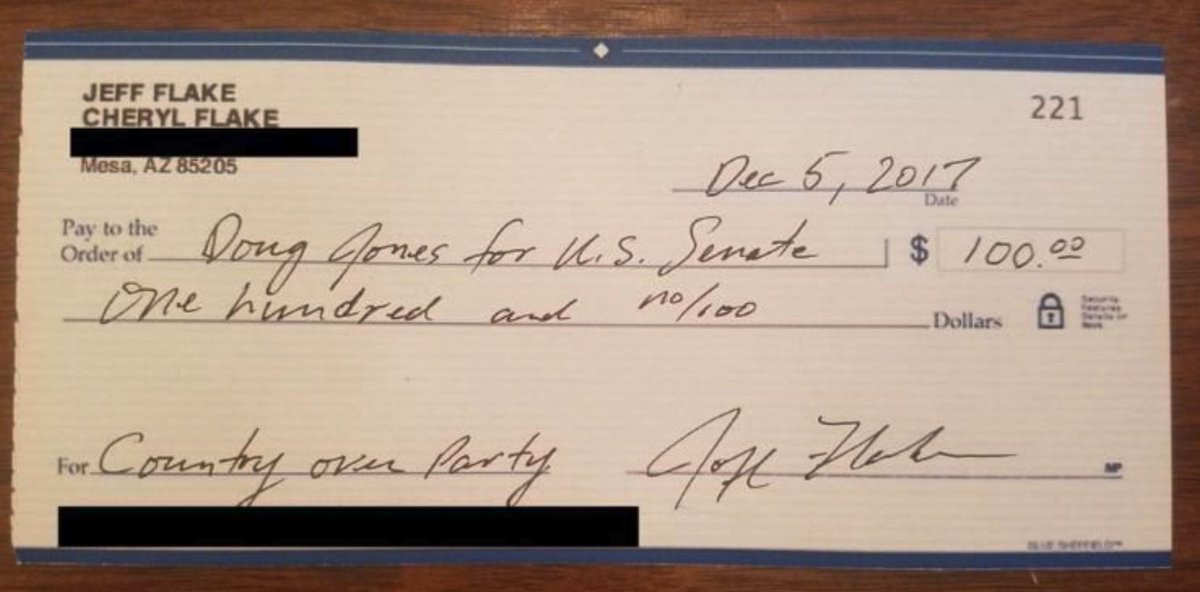 JEFF FLAKE
CHERYL FLAKE
221
Mesa, AZ 85205
Dec 5, 2017
Date
Pay to the
Order of Doug Jones for U.S. Senate $ 100.00
One hundred and no/100 Dollars
Security
Features
Details on
Back
For Country over Party Jeff Flake MP
BLUE SHEFFIELD™